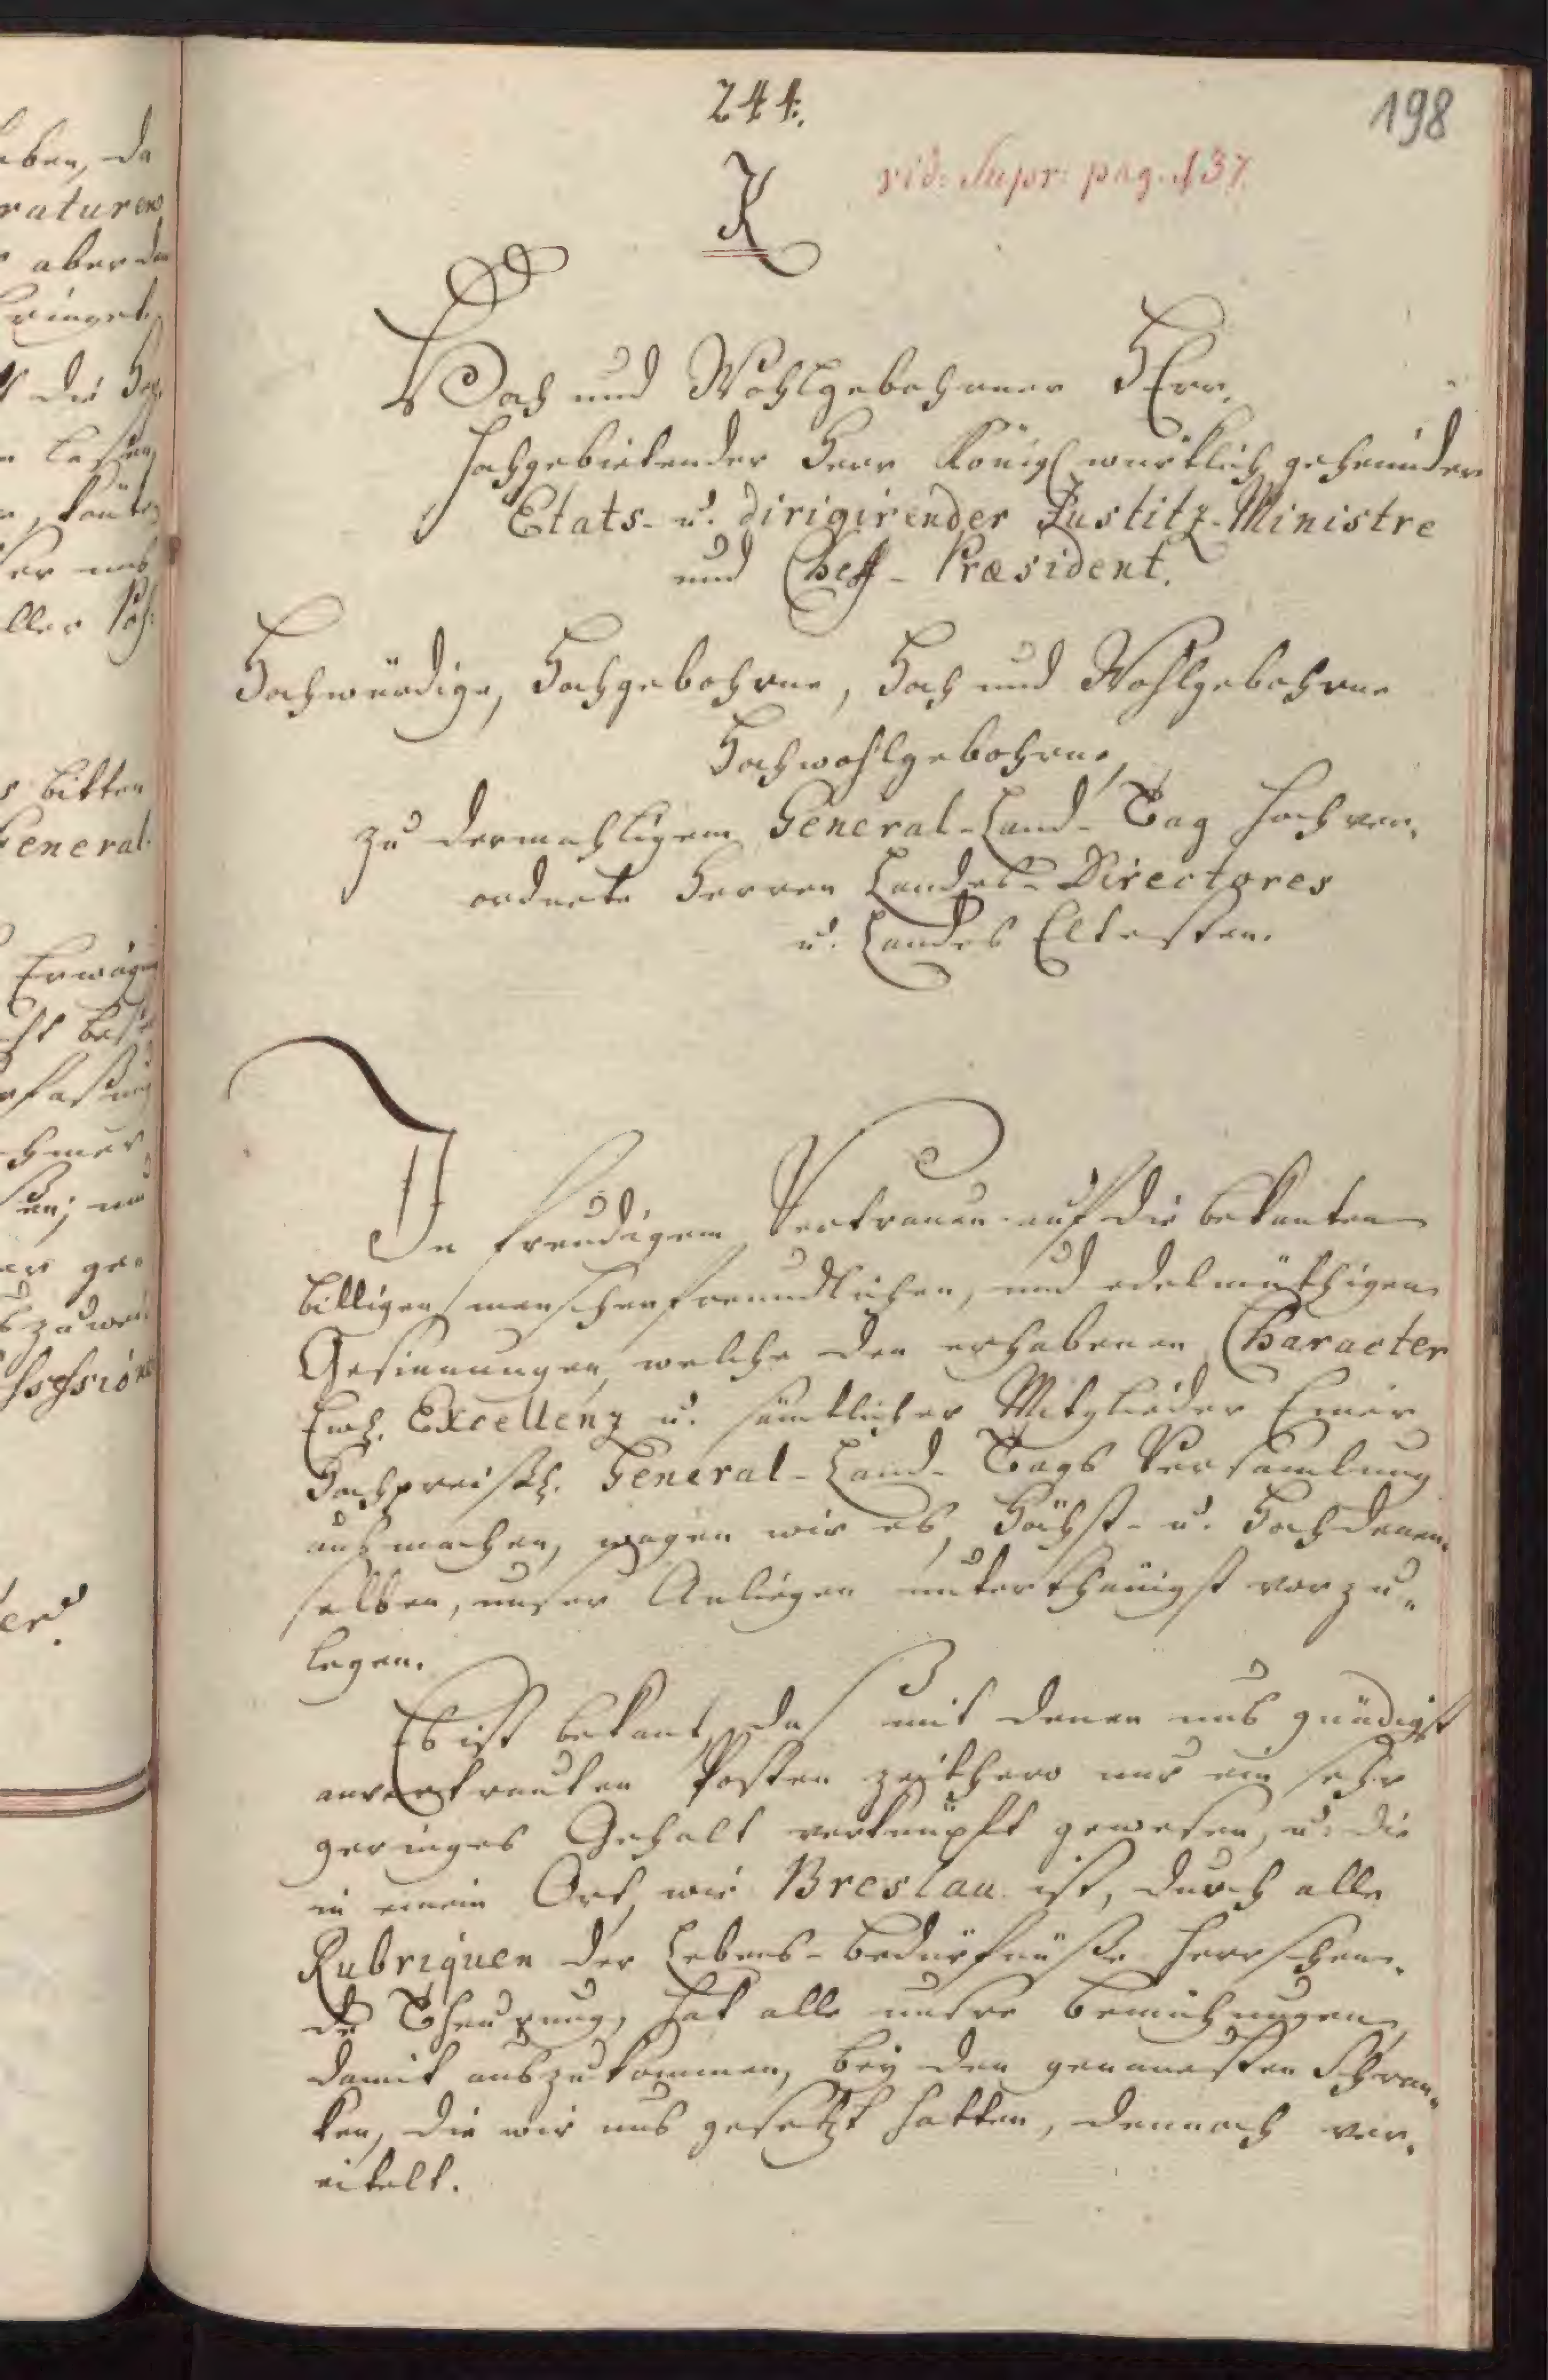 244.
198
vid: Supr: pag. 137.
K
Hoch und Wohlgebohrner HErr,
Hochgebietender Herr Königl würklich geheimder
Etats- u. dirigirender Justitz-Ministre
und Cheff-Præsident.
Hochwürdige, Hochgebohrne, Hoch und Wohlgebohrne
Hochwohlgebohrne,
zu dermahligem General-Land-Tag hoch ver-
ordnete Herren Landes-Directores
u. Landes Eltesten.
In freudigem Vertrauen auf die bekanten
billigen menschenfreundlichen, und edelmüthigen
Gesinnungen, welche den erhabenen Character
Ew. Excellenz u. sämtlicher Mitglieder Einer
Hochpreißl. General-Land-Tags Versamlung
ausmachen, wagen wir es, Höchst- u. Hochdenen-
selben, unser Anliegen unterthänigst vorzu-
legen.
Es ist bekant, das mit denen uns gnädigst
anvertrauten Posten zeithero nur ein sehr
geringes Gehalt verknüpft gewesen, u. die
in einem Ort, wie Breslau ist, durch alle
Rubriquen der Lebens-Bedürfnüße herrschen-
de Theurung, hat alle unsre Bemühungen,
damit auszukommen, bey den genauesten Schran-
ken, die wir uns gesetzt hatten, dennoch ver-
eitelt.